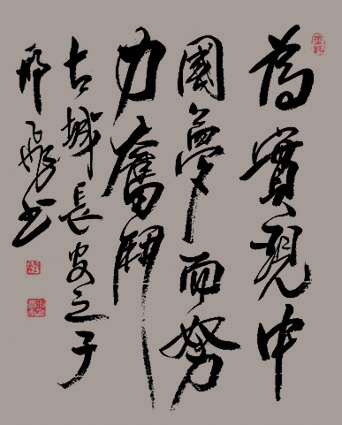 為實現中
國夢而努
力奮鬥
古城長安之子
邢飛书